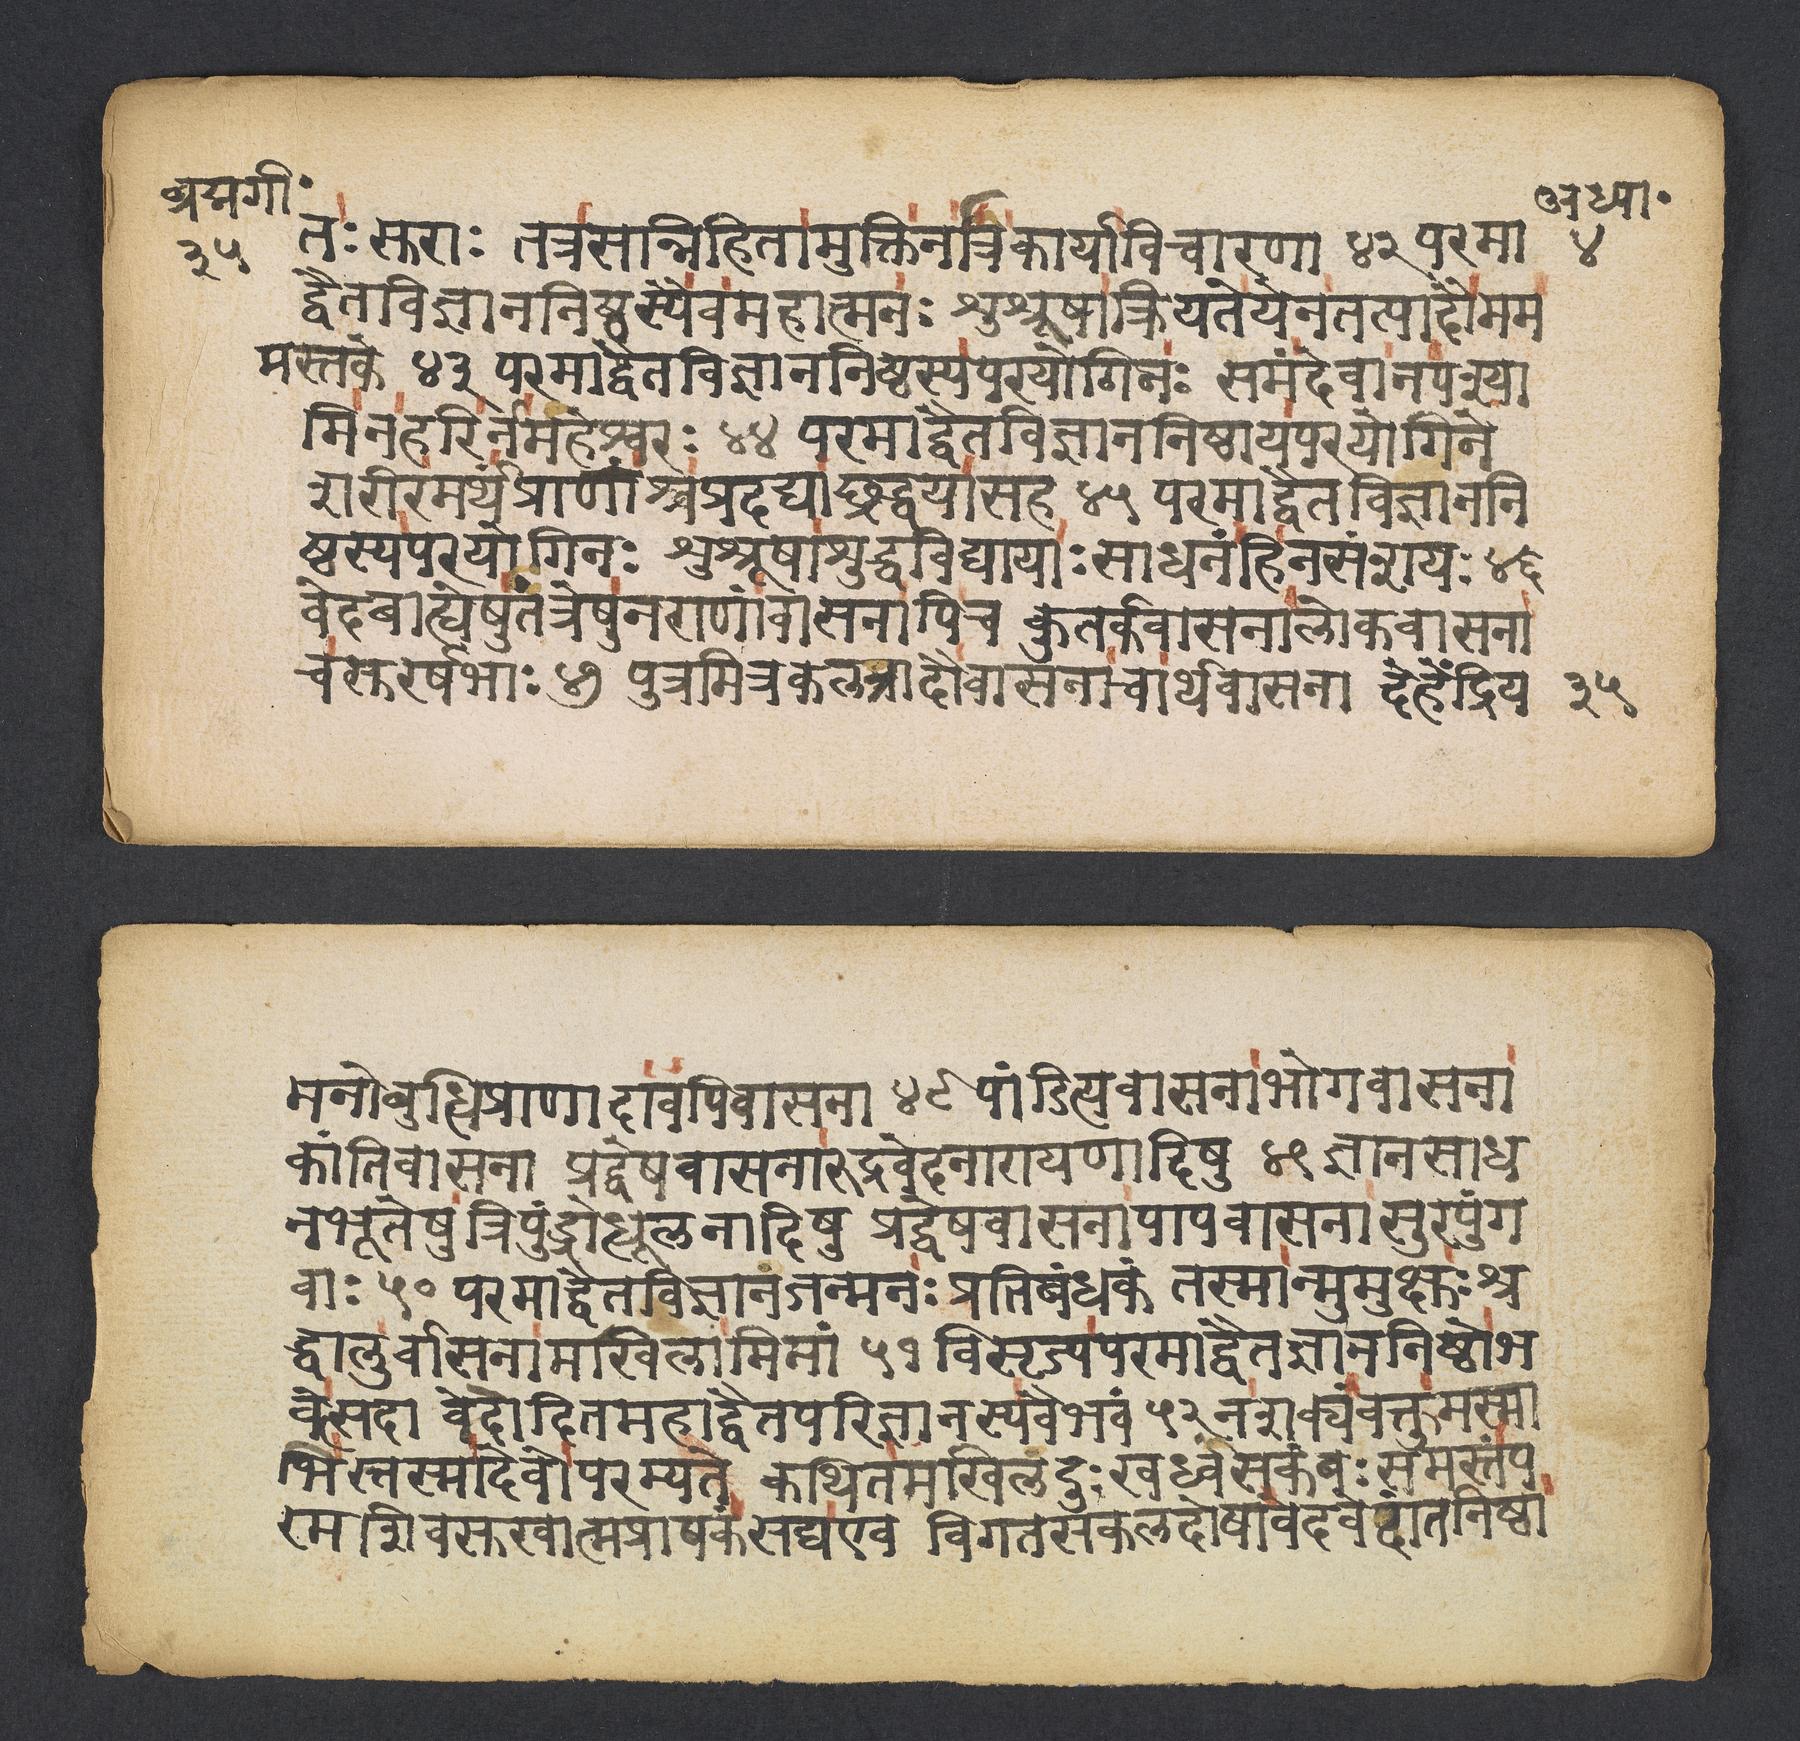 ब्रह्मगी॰
३५
अध्या॰
४
तः सुराः तत्रसान्निहितामुक्तिनात्रिकार्याविचारणा ४२ परमा
द्वैतविज्ञाननिष्ठस्यैवमहात्मनः शुश्रूषाक्रियतेयेनतत्पादौमम
मस्तके ४३ परमाद्वैतविज्ञाननिष्ठस्यपरयोगिनः समंदेवानपश्या
मिनहरिर्नमहेश्वरः ४४ परमाद्वैतविज्ञाननिष्ठायपरयोगिने
शरीरमर्थंप्राणांश्चप्रदद्याछ्रद्धयासह ४५ परमाद्वैतविज्ञाननि
ष्ठस्यपरयोगिनः शुश्रूषाशुद्धविद्यायाःसाधनंहिनसंशयः ४६
वेदबाह्येषुतंत्रेषुनराणांवासनापिच कुतर्कवासनालोकवासना
चसुरर्षभाः ४७ पुत्रमित्रकलत्रादौवासनाचार्थवासना देहेंद्रिय
३५
मनोबुधिप्राणादावपिवासना ४८ पांडित्यवासनाभोगवासना
कांतिवासना प्रद्वेषवासनारुद्रवेदनारायणादिषु ४९ ज्ञानसाध
नभूतेषुत्रिपुंड्रोधूलनादिषु प्रद्वेषवासनापापवासनासुरपुंग
वाः ५० परमाद्वैतविज्ञानजन्मनः प्रतिबंधकं तस्मान्मुमुक्षुःश्र
द्धालुर्वासनामखिलामिमां ५१ विसृज्यपरमाद्वैतज्ञाननिष्ठोभ
वेत्सदा वेदोदितमहाद्वैतपरिज्ञानस्यवैभवं ५२ नशक्यंवक्तुमस्मा
भिस्तस्मादेवोपरम्यते कथितमखिलंदुःखध्वंसकंवःसमस्तंप
रमशिवसुखात्मप्रापकंसद्यएव विगतसकलदोषावेदवेदांतनिष्ठा